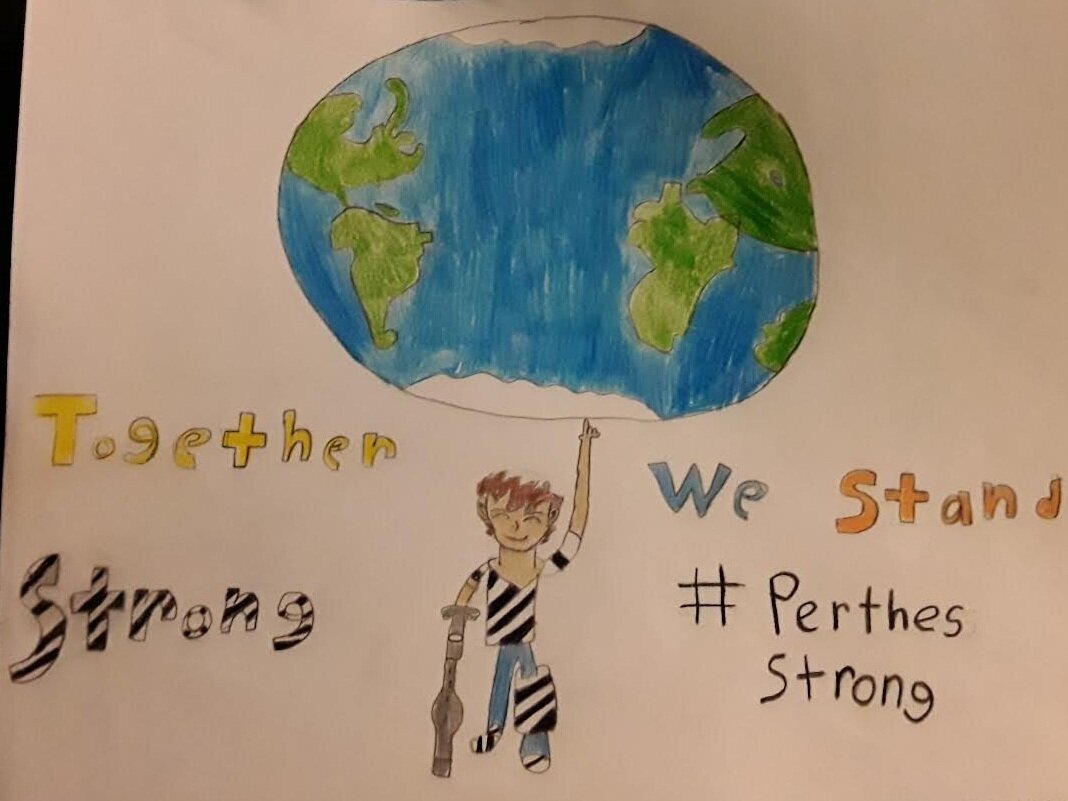 Together
We Stand
Strong
# Perthes
Strong